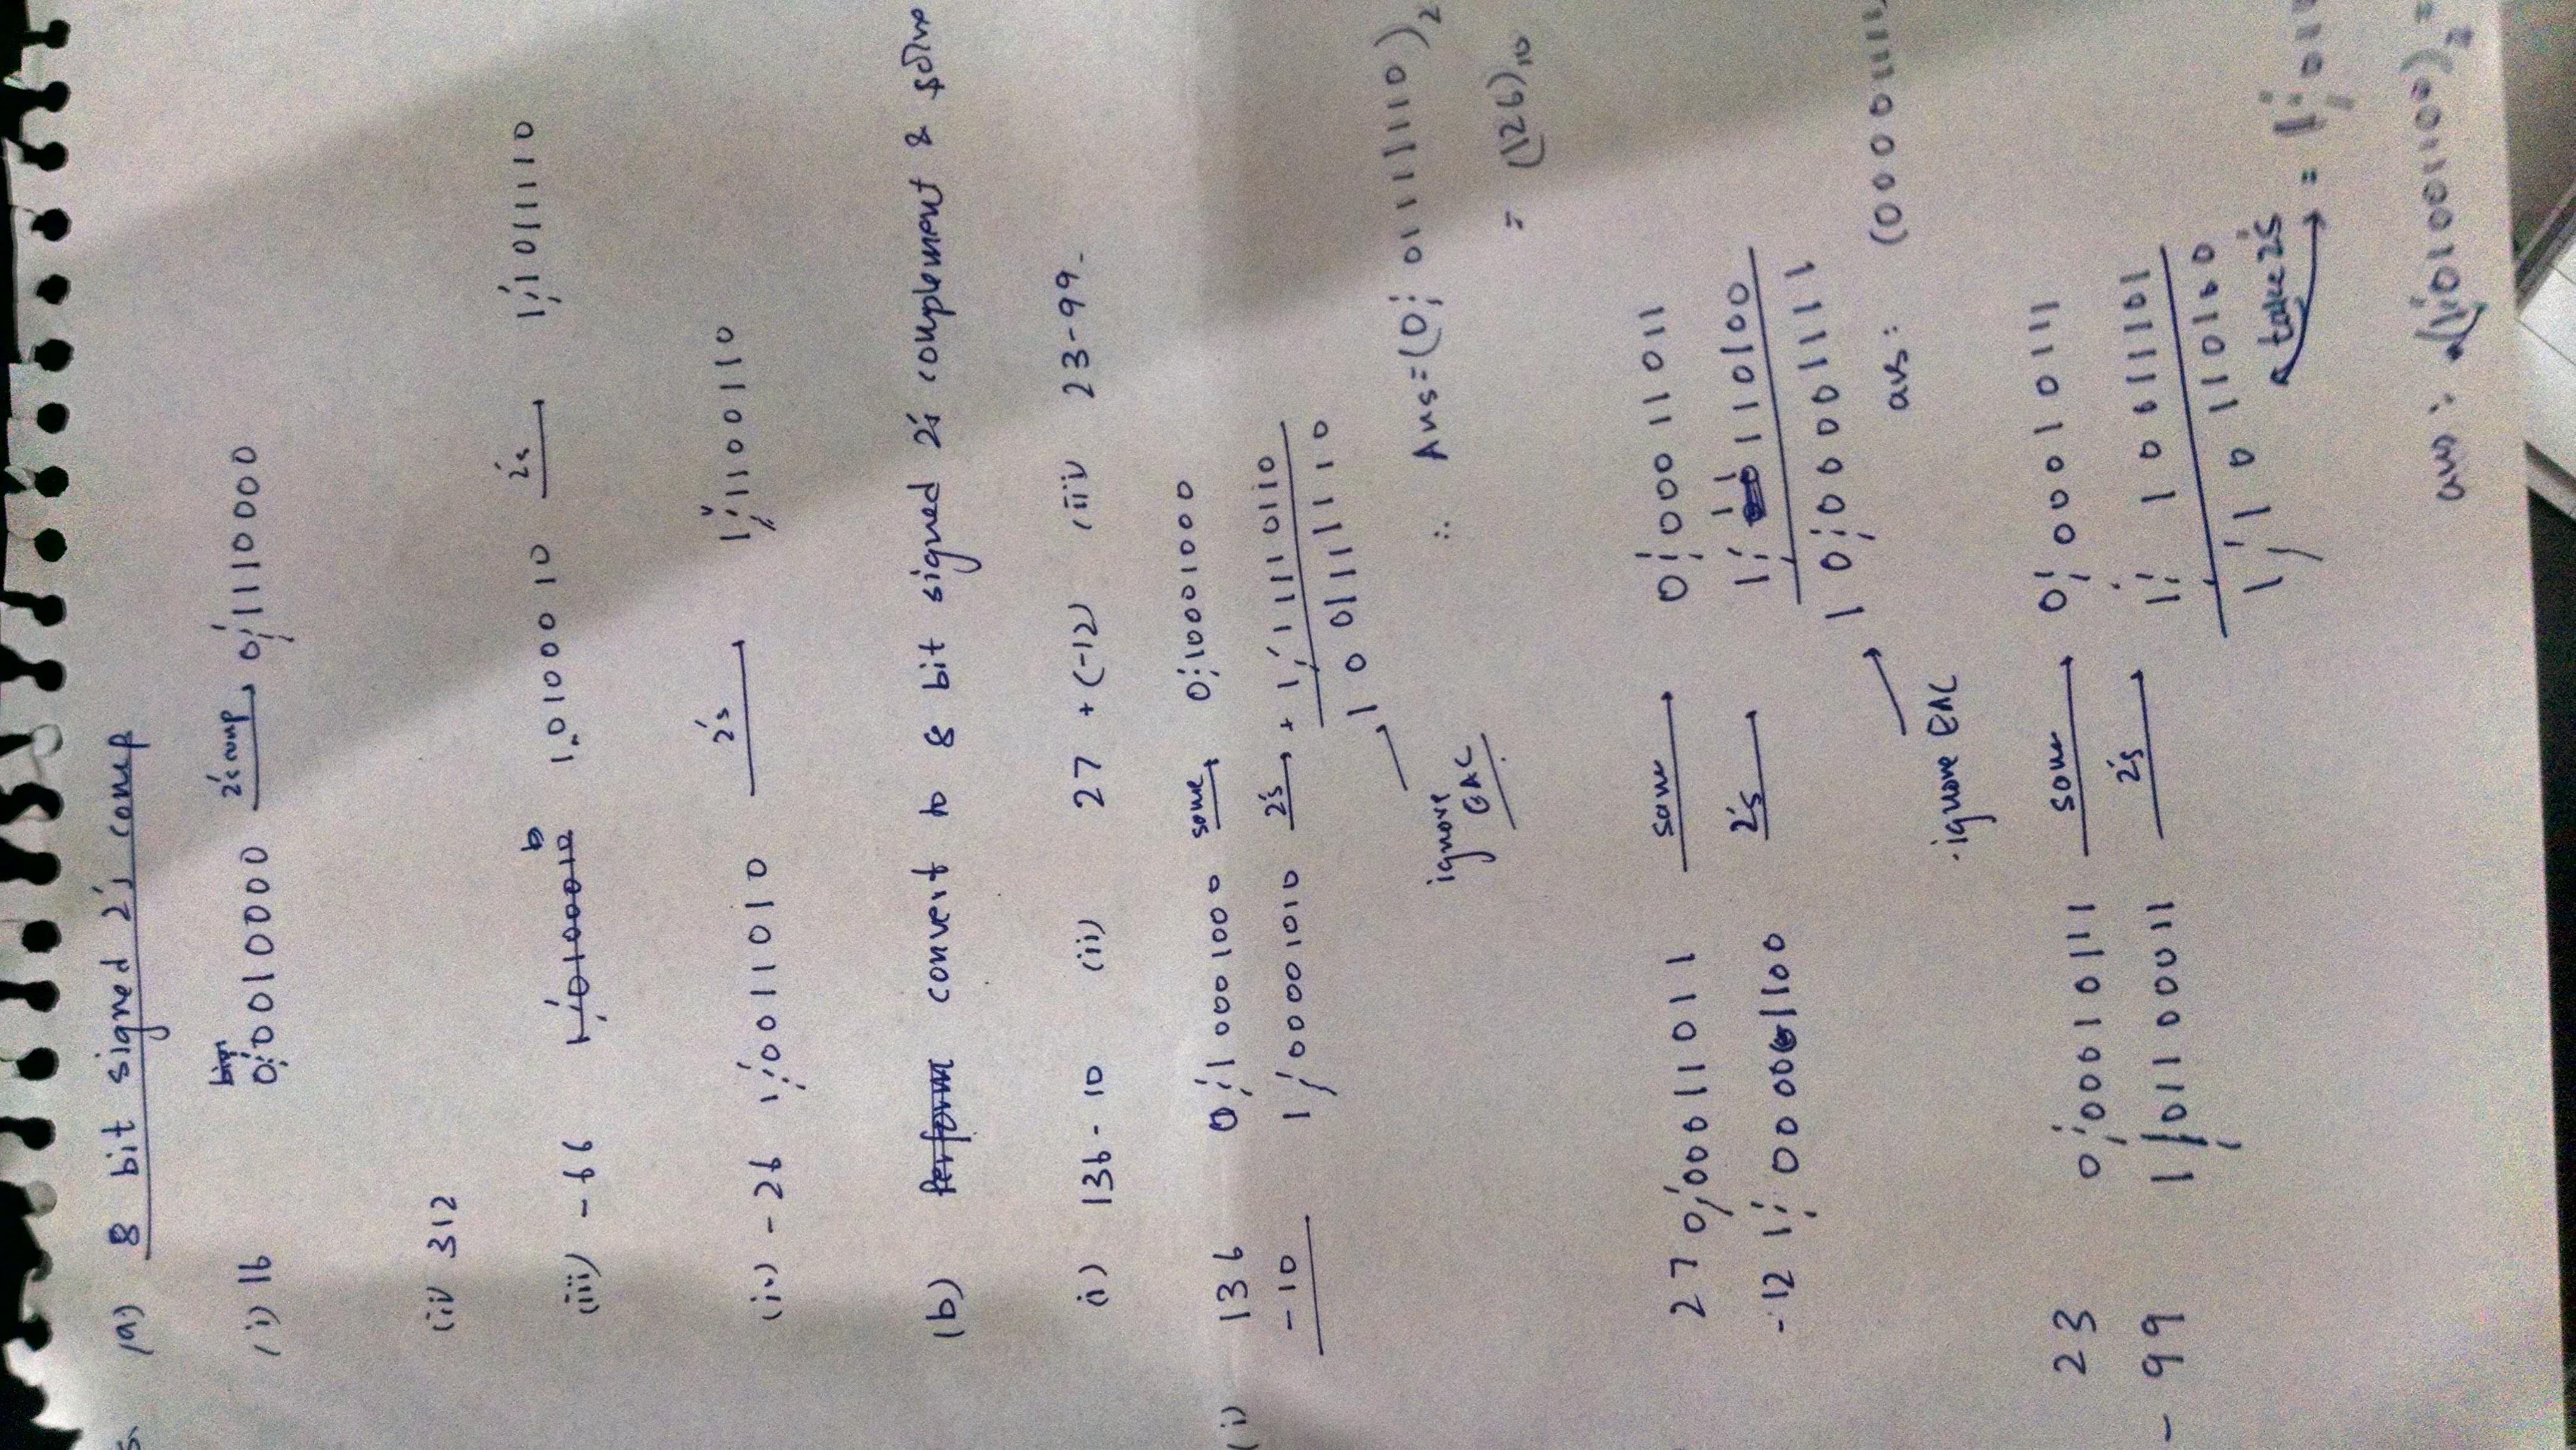 5. (a) 8 bit signed 2's comp
(i) 16 0;0010000 2's comp 0;1110000
(ii) 312
(iii) -66 1;01000010 1,01000 10 2's 1;1011110
(iv) -26 1;0011010 2's 1;1100110
(b) Perform convert to 8 bit signed 2's complement & solve
(i) 136-10 (ii) 27 + (-12) (iii) 23-99.
(i) 136 0;10001000 same 0;10001000
-10 1;00001010 2's + 1;11110110
1 0 01111110
ignore EAC
∴ Ans=(0;01111110)2
= (126)10
27 0;0011011 same 0;0011011
-12 1;0001100 2's 1;1110100
1 0;0001111
ignore EAC ans: (0000111
23 0;0010111 same 0;0010111
- 99 1;1100011 2's 1;0011101
1;0110100
take 2's = 1;
ans: (1;1001100)2 =